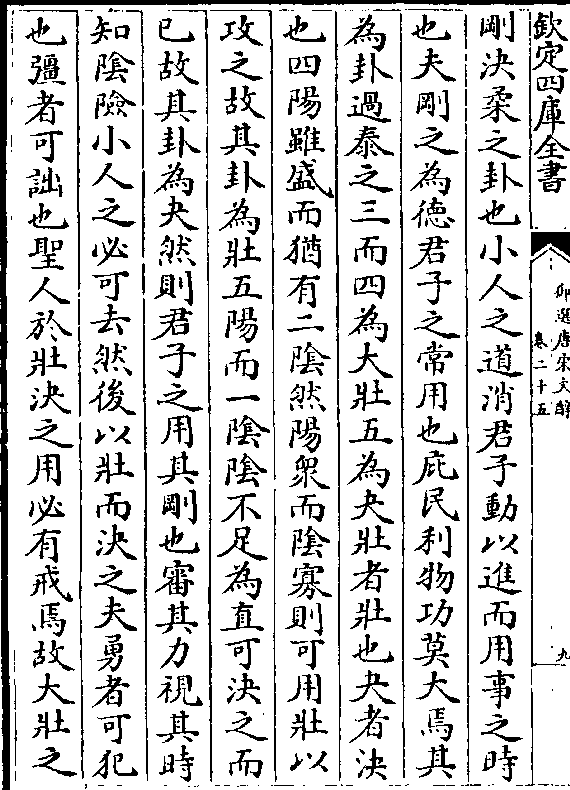 欽定四庫全書
御選唐宋文醇
卷二十五
九
剛決柔之卦也小人之道消君子動以進而用事之時
也夫剛之為德君子之常用也庇民利物功莫大焉其
為卦過泰之三而四為大壯五為夬壯者壯也夬者決
也四陽雖盛而猶有二隂然陽衆而隂寡則可用壯以
攻之故其卦為壯五陽而一隂隂不足為直可決之而
已故其卦為夬然則君子之用其剛也審其力視其時
知隂險小人之必可去然後以壯而決之夫勇者可犯
也彊者可詘也聖人於壯決之用必有戒焉故大壯之